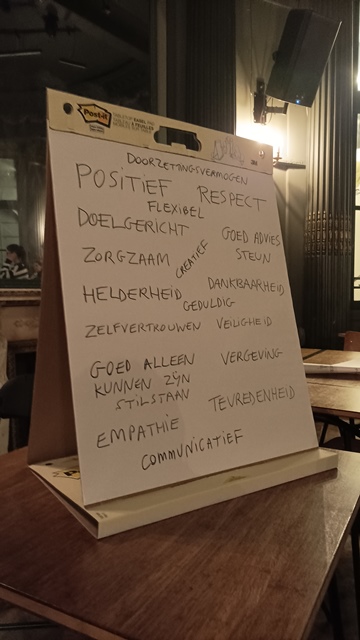 Post-it
DOORZETTINGSVERMOGEN
POSITIEF
RESPECT
FLEXIBEL
DOELGERICHT
GOED ADVIES
STEUN
CREATIEF
ZORGZAAM
HELDERHEID
DANKBAARHEID
GEDULDIG
ZELFVERTROUWEN
VEILIGHEID
GOED ALLEEN
KUNNEN ZIJN
STILSTAAN
VERGEVING
TEVREDENHEID
EMPATHIE
COMMUNICATIEF